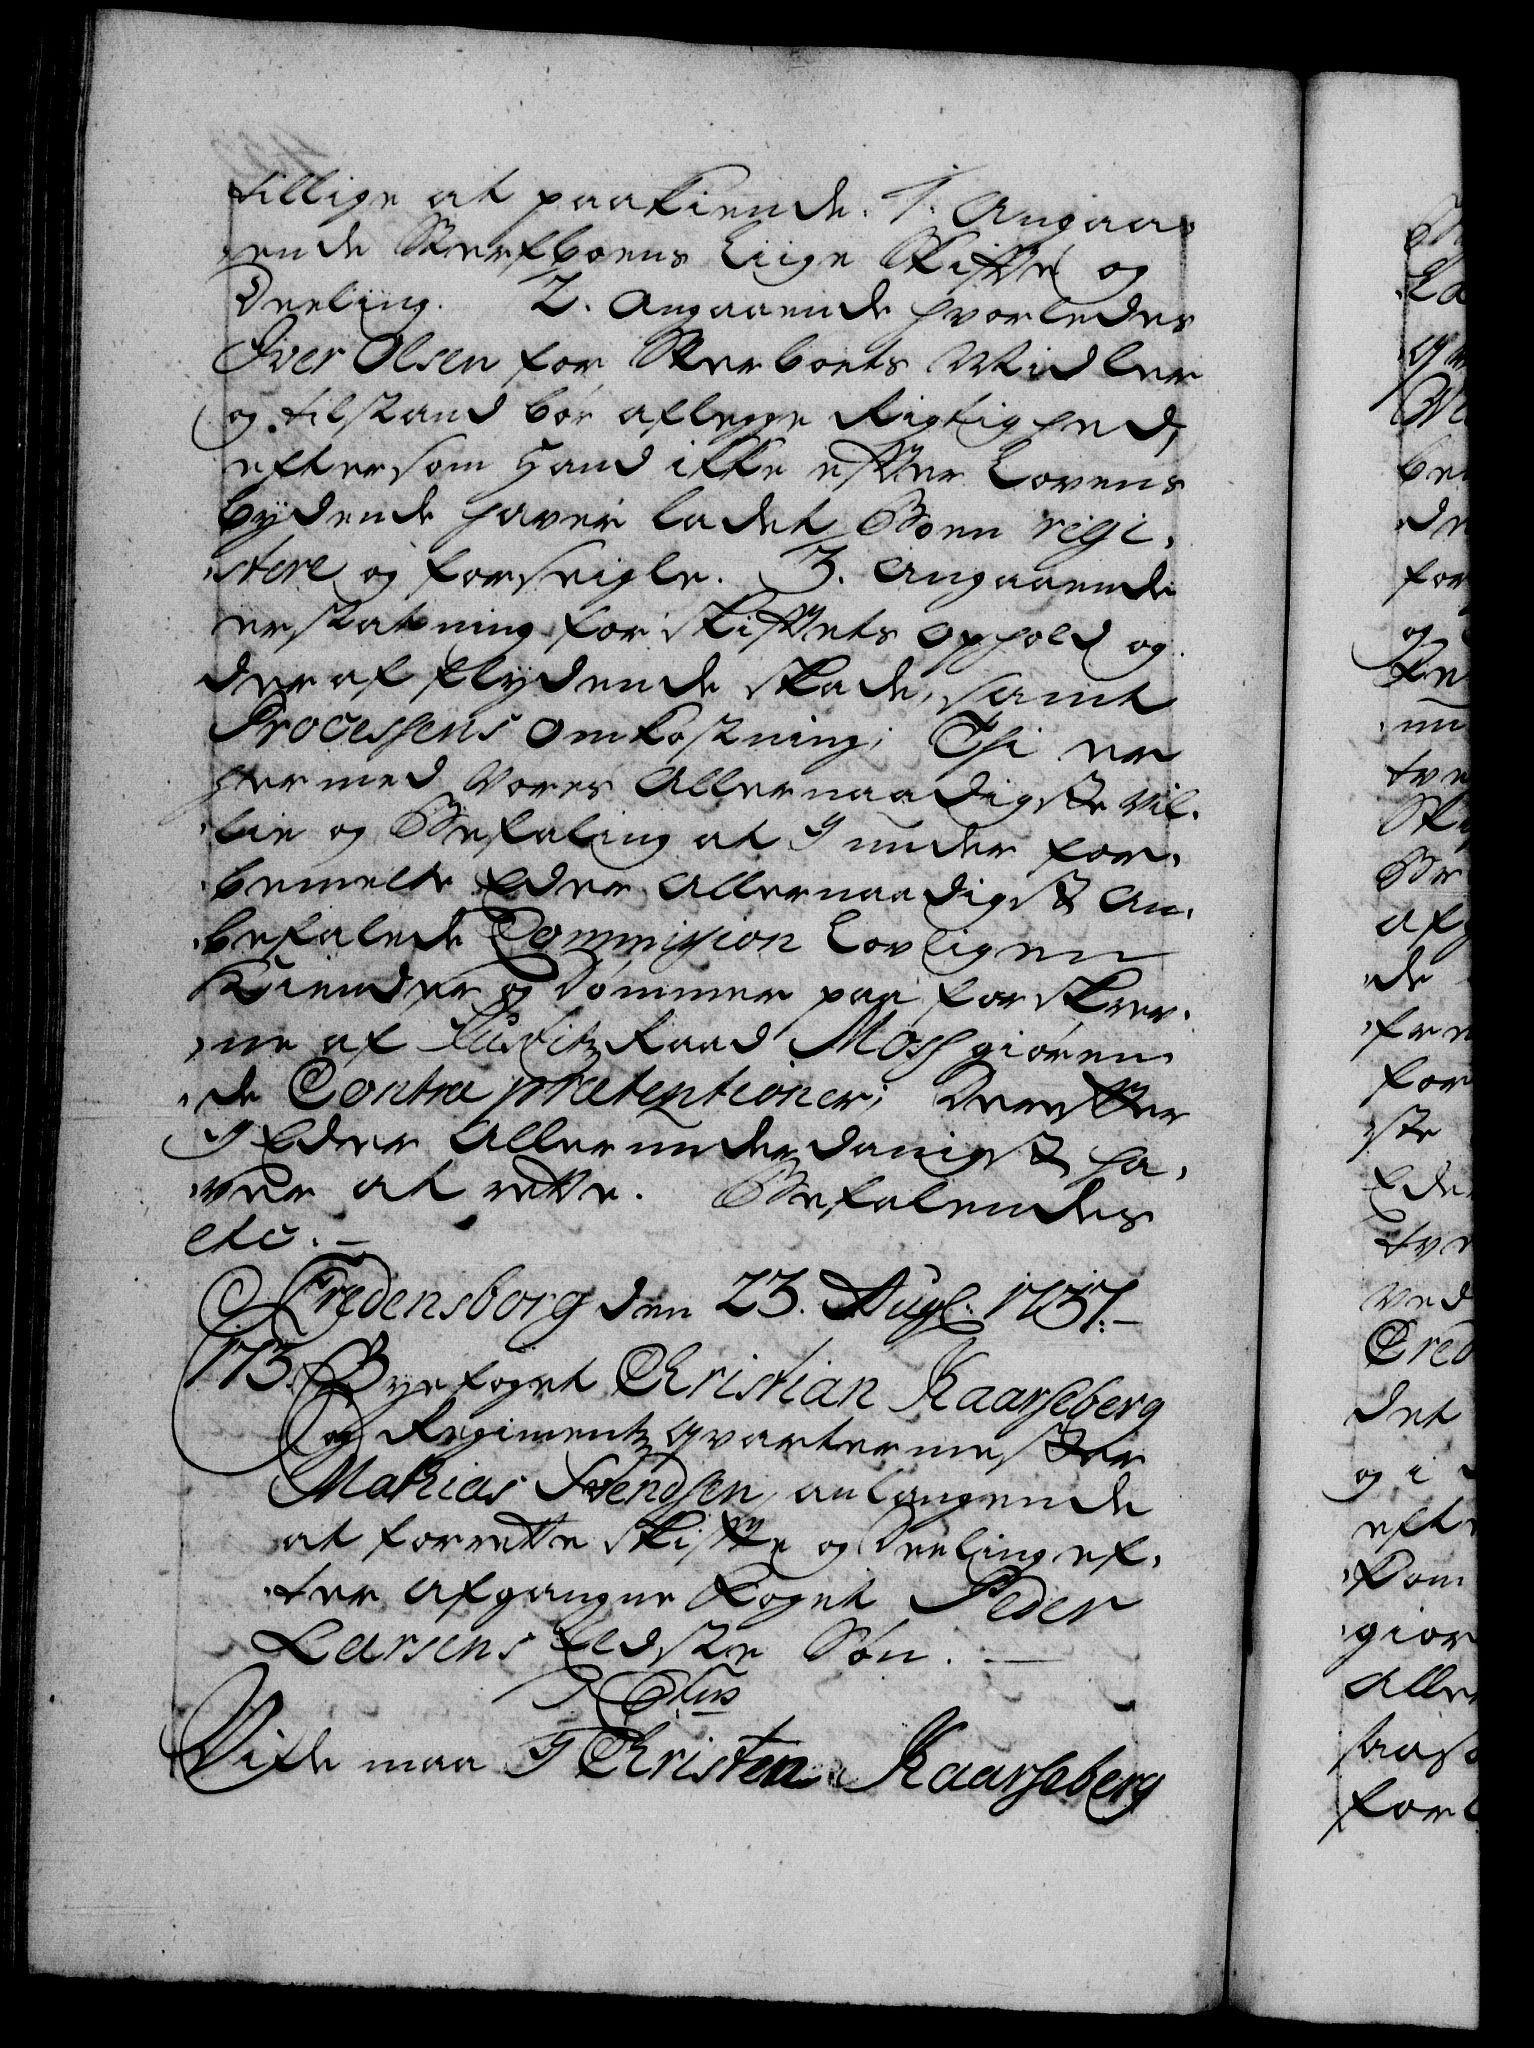 tillige at paakiende. 1. Angaa¬
ende Sterfboens liige Skifte og
Deeling. 2. Angaaende hvorledes
Iver Olsen for Sterboets Midler
og tilstand bør aflegge Rigtighed,
eftersom Hand ikke efter Lovens
bydende haver ladet Boen regi¬
stere og forseigle. 3. Angaaende
erstatning for Skiftets Ophold og
deraf flydende skade, samt
Processens Omkostning; Thi er
hermed Vores Allernaadigste Vil¬
lie og Befaling at I under for¬
bemelte Eder Allernaadigst An¬
befalede Commission lovligen
Kiender og dømmer paa forskrev¬
ne af Justitz Raad Moss giøren¬
de Contra prætentioner; Derefter
I Eder Allerunderdanigst ha¬
ver at rette. Befalendes
etc. –
Fredensborg den 23. Aug: 1737. –
173. Byefoget Christian Kaarsberg
og Regimentz qvartermester
Mathias Svendsen, anlangende
at forrette Skifte og Deeling ef¬
ter afgangne Foget Peder
Larsens Eldste Søn. –
C 6tus
Vide maa I Christen Kaarsberg